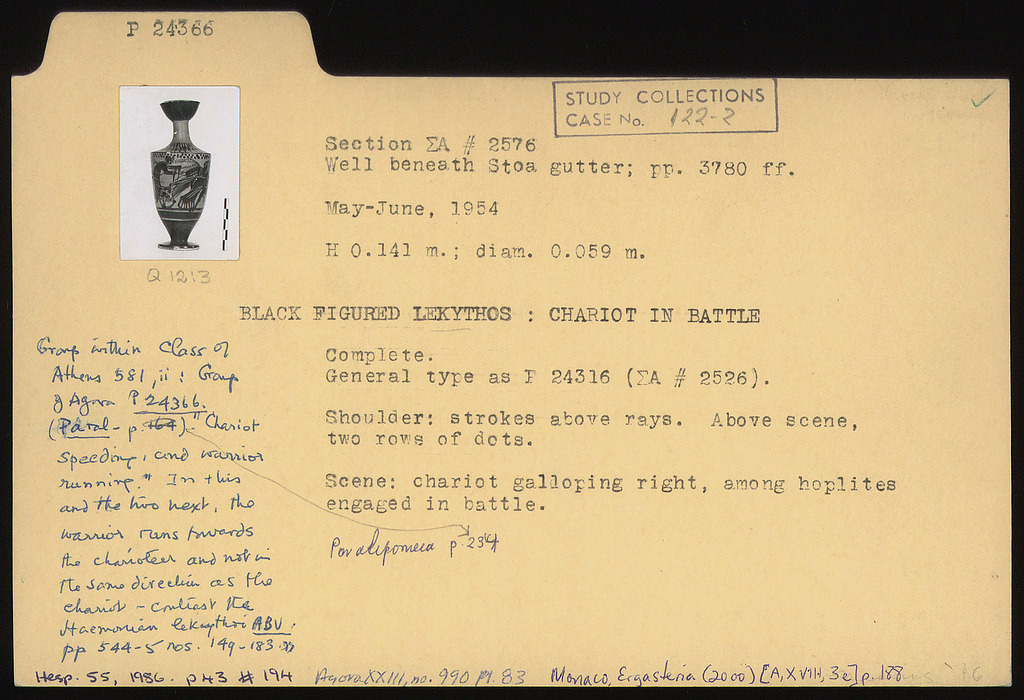 P 24366
STUDY COLLECTIONS
CASE No. 122-2
Section ΣA # 2576
Well beneath Stoa gutter; pp. 3780 ff.
May-June, 1954
H 0.141 m.; diam. 0.059 m.
Q 1213
BLACK FIGURED LEKYTHOS : CHARIOT IN BATTLE
Complete.
General type as P 24316 (ΣA # 2526).
Shoulder: strokes above rays. Above scene,
two rows of dots.
Scene: chariot galloping right, among hoplites
engaged in battle.
Paralipomena p. 234
Group within Class of
Athens 581, ii : Group
of Agora P 24366.
(Paral. p. 164). "Chariot
speeding, and warrior
running." In this
and the two next, the
warrior runs towards
the charioteer and not in
the same direction as the
chariot – contrast the
Haemonian lekythoi ABV.
pp 544-5 nos. 149-183."
Hesp. 55, 1986. p 43 # 194
Agora XXIII, no. 990 Pl. 83
Monaco, Ergasteria (2000) [A, XVIII, 3e] p. 188